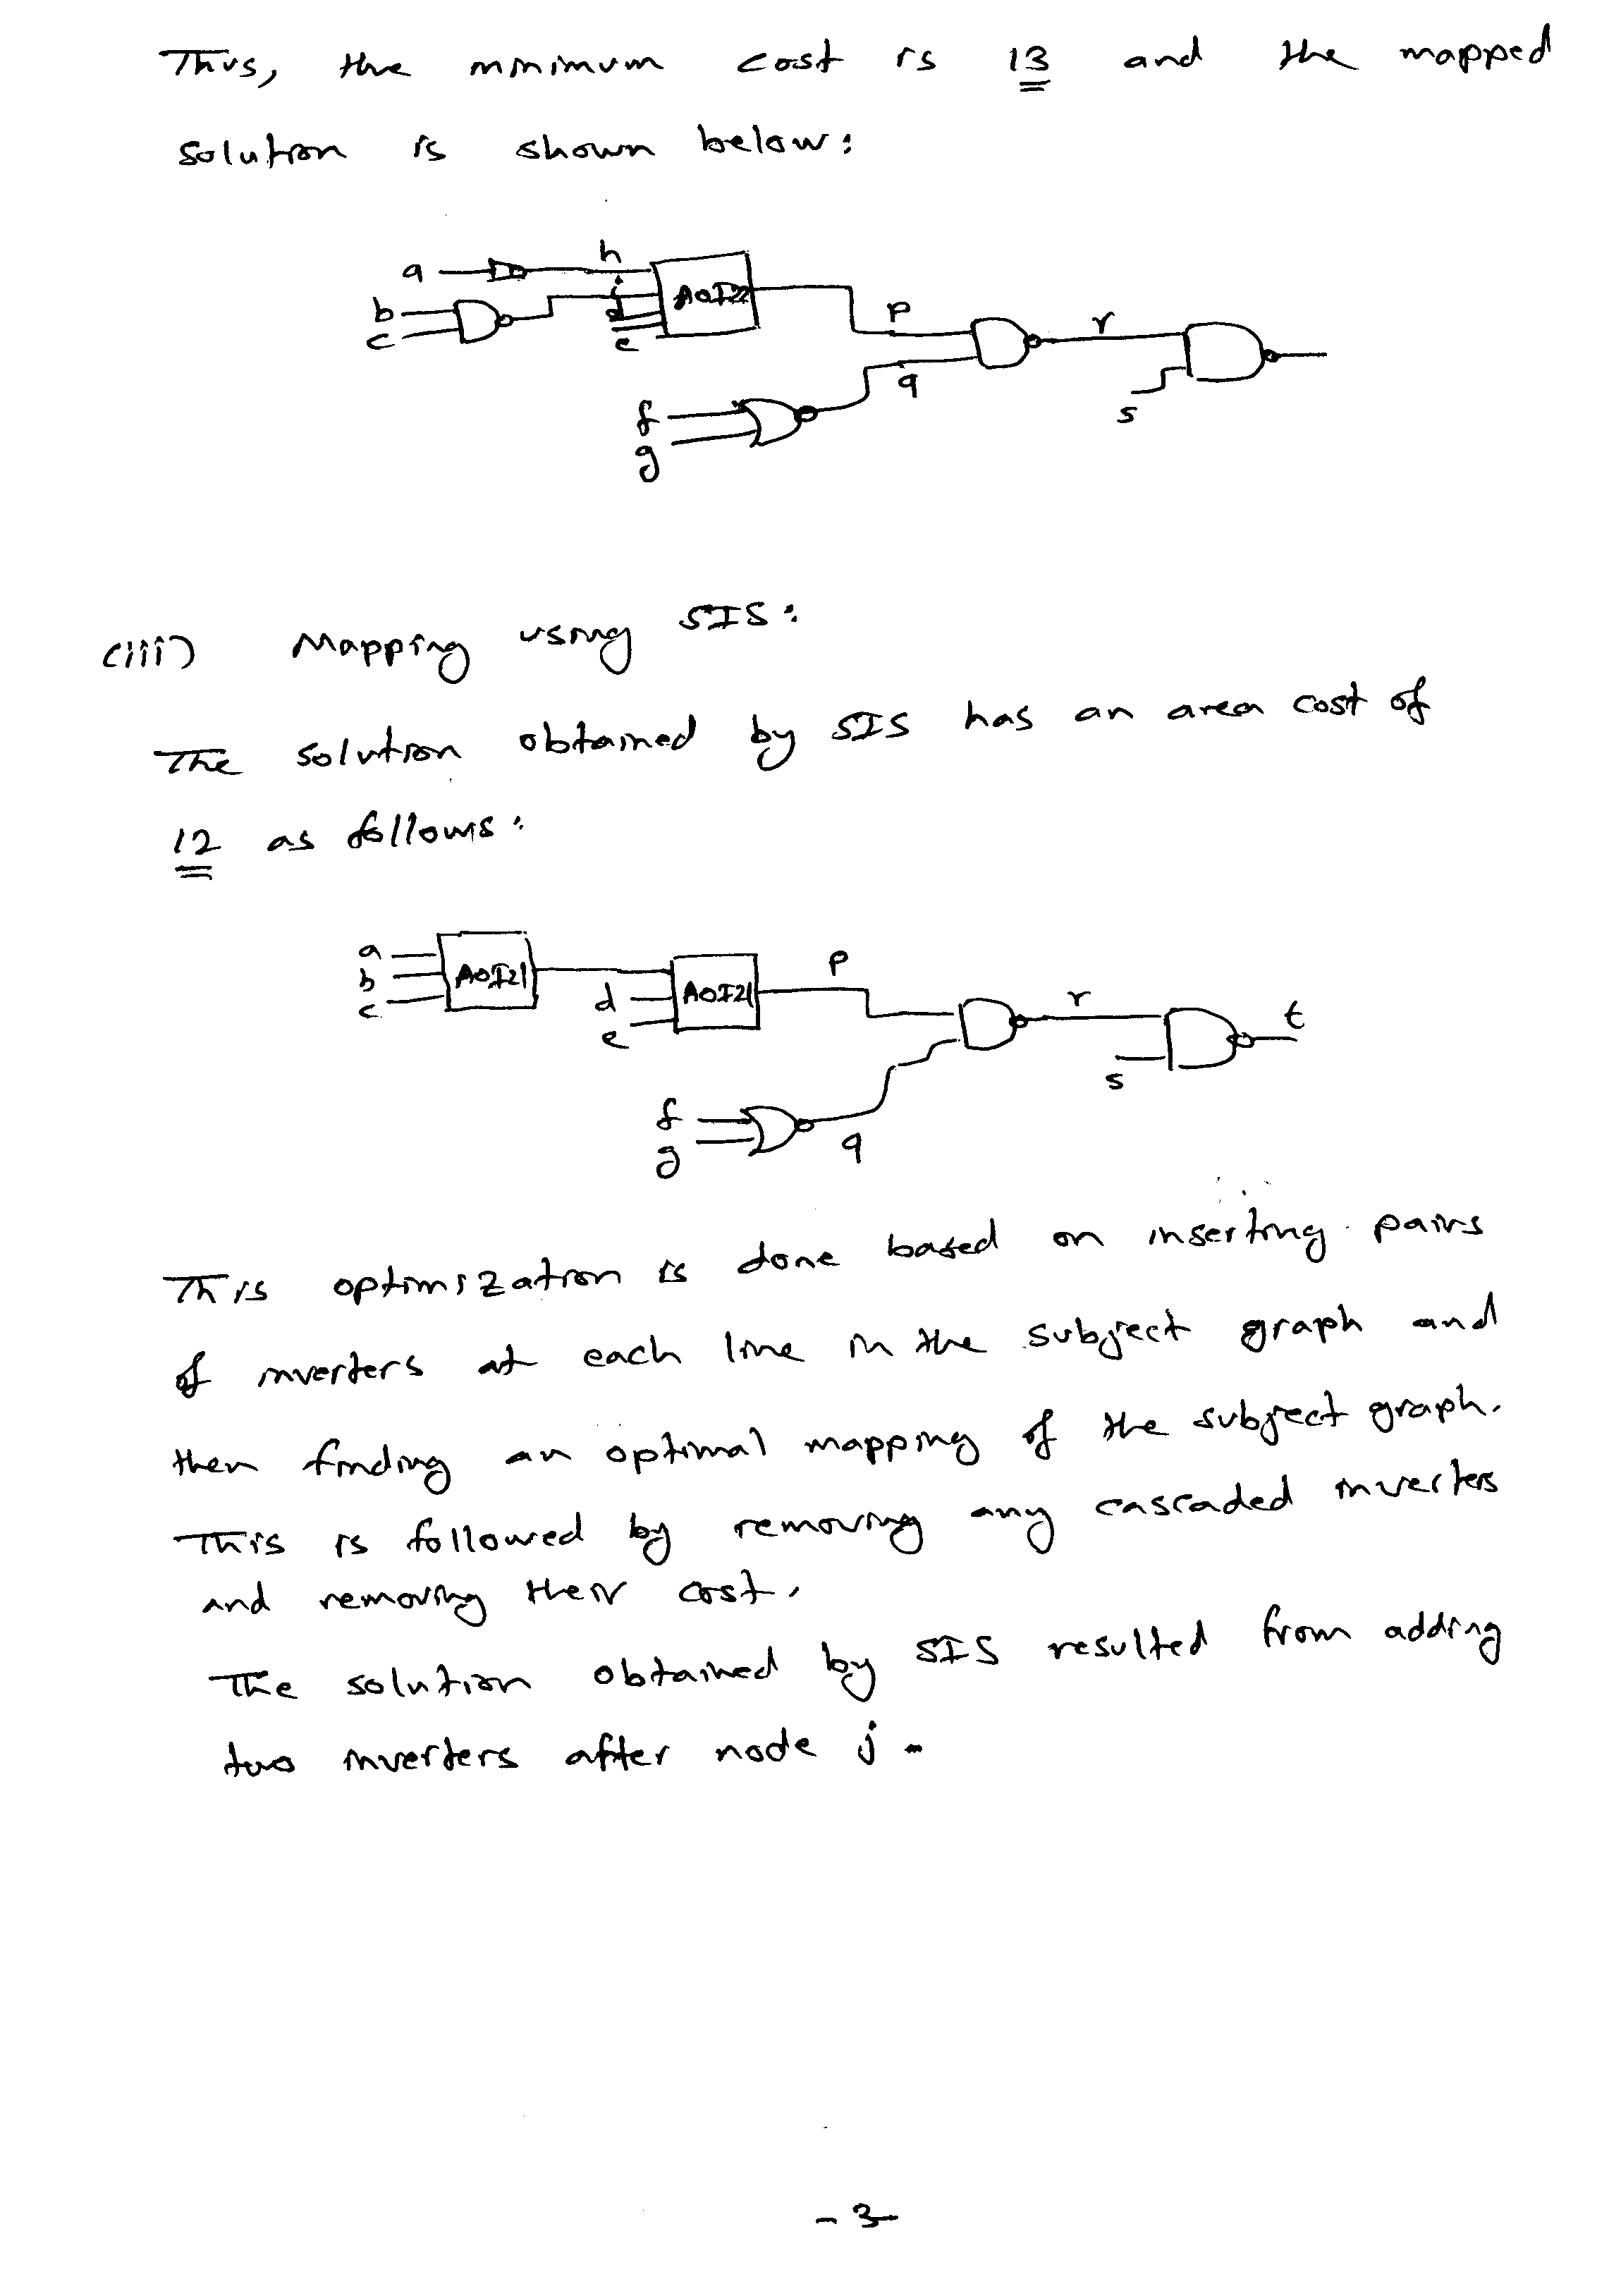 Thus, the minimum cost is 13 and the mapped
solution is shown below:
a h AOI22
b i
c d
e
p r
q
f s
g
(iii) Mapping using SIS:
The solution obtained by SIS has an area cost of
12 as follows:
a p
b AOI21 AOI21
c d r t
e
s
f
g q
This optimization is done based on inserting pairs
of inverters at each line in the subject graph and
then finding an optimal mapping of the subject graph.
This is followed by removing any cascaded inverters
and removing their cost.
The solution obtained by SIS resulted from adding
two inverters after node j.
-3-